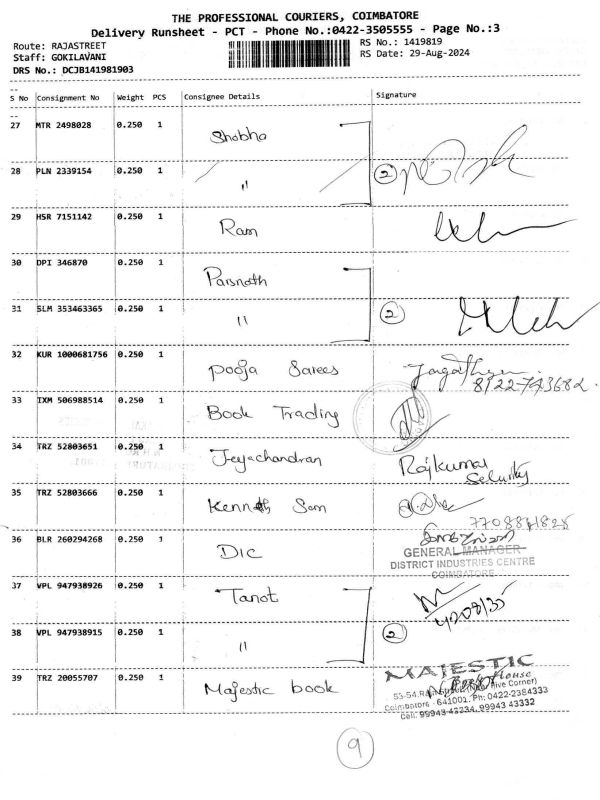 THE PROFESSIONAL COURIERS, COIMBATORE
Delivery Runsheet - PCT - Phone No.:0422-3505555 - Page No.:3
Route: RAJASTREET
RS No.: 1419819
Staff: GOKILAVANI
RS Date: 29-Aug-2024
DRS No.: DCJB141981903
S No Consignment No Weight PCS Consignee Details Signature
27 MTR 2498028 0.250 1 Shobha
28 PLN 2339154 0.250 1 " 2
29 HSR 7151142 0.250 1 Ram
30 DPI 346870 0.250 1 Parsnath
31 SLM 353463365 0.250 1 " 2
32 KUR 1000681756 0.250 1 Pooja Sarees
8122743682
33 IXM 506988514 0.250 1 Book Trading
34 TRZ 52803651 0.250 1 Jeyachandran Rajkumar
Security
35 TRZ 52803666 0.250 1 Kennath Sam
36 BLR 260294268 0.250 1 DIC
GENERAL MANAGER
DISTRICT INDUSTRIES CENTRE
COIMBATORE
37 VPL 947938926 0.250 1 Tanot
38 VPL 947938915 0.250 1 " 2
39 TRZ 20055707 0.250 1 Majestic book
MAJESTIC
Book House
Coimbatore - 641001. Ph: 0422-2384333
Cell: 99943 43234, 99943 43332
9